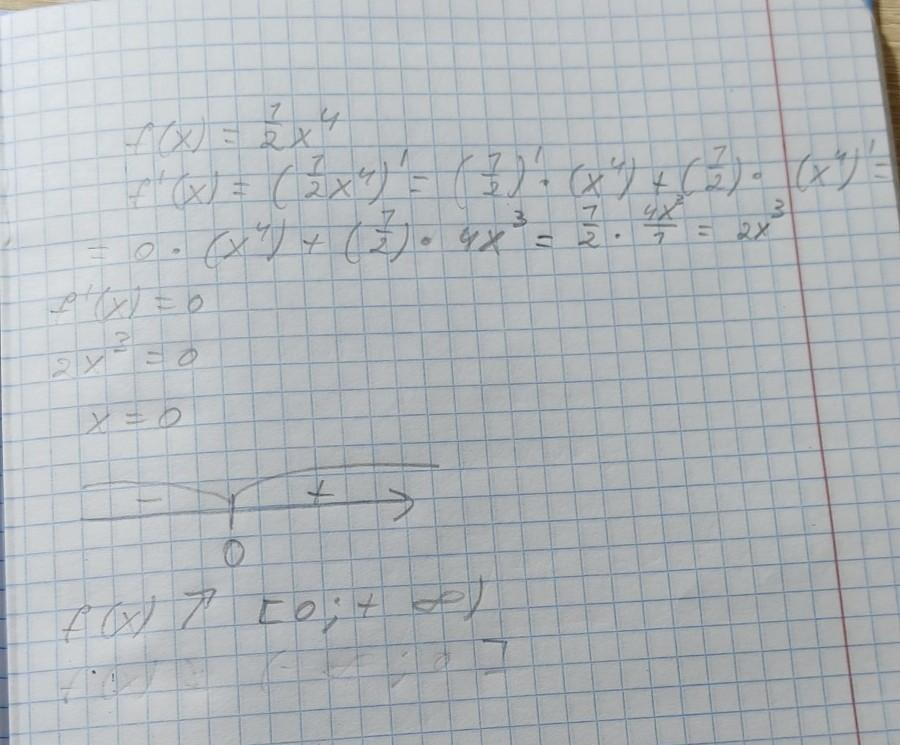 f(x) = 1/2 x⁴
f'(x) = (1/2 x⁴)' = (1/2)' · (x⁴) + (1/2) · (x⁴)' =
= 0 · (x⁴) + (1/2) · 4x³ = 1/2 · 4x³/1 = 2x³
f'(x) = 0
2x³ = 0
x = 0
- +
0
f(x) ↗ [0; + ∞)
f(x) (- ∞; 0]